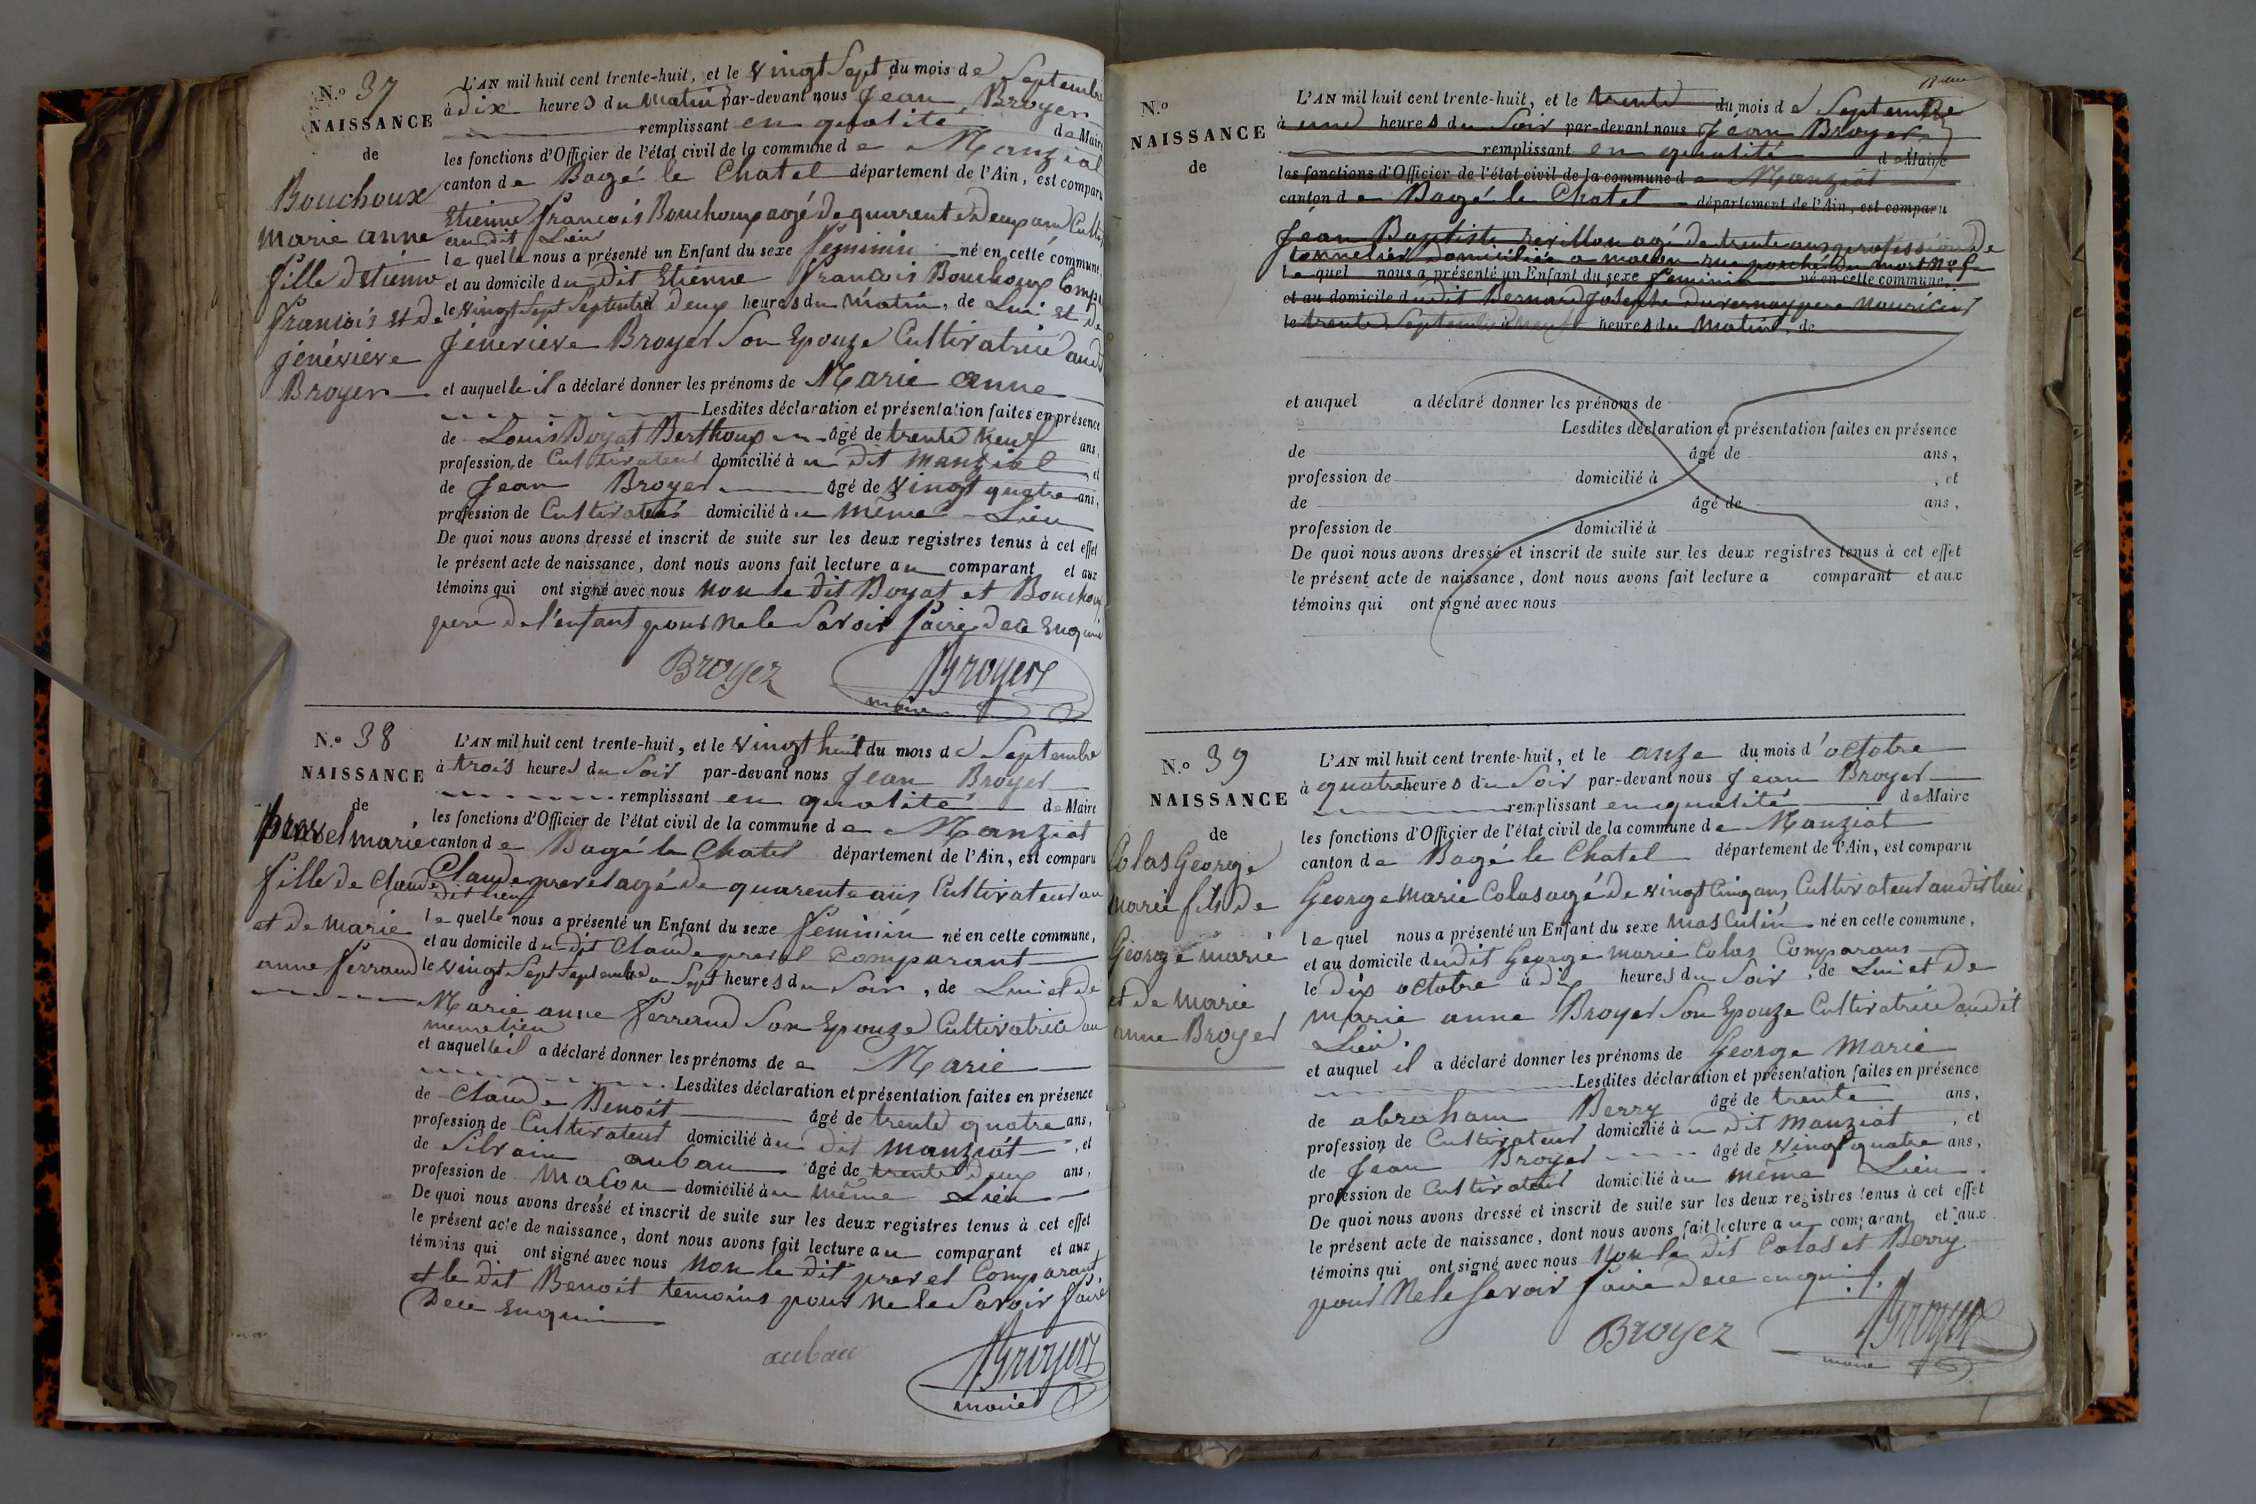 N.º 37
NAISSANCE
de
Bouchoux
Marie anne
fille d'etienne
francois et de
jénéviéve
Broyer
L'AN mil huit cent trente-huit, et le vingt Sept du mois de Septembre
à dix heures du matin par-devant nous Jean Broyer
remplissant en qualité de Maire
les fonctions d'Officier de l'état civil de la commune de Manziat
canton de Bagé le Chatel département de l'Ain, est comparu
Etienne francois Bouchoux agé de quarente deux ans Cultiv
audit Lieu
lequel nous a présenté un Enfant du sexe féminin né en cette commune,
et au domicile dudit Etienne francois Bouchoux Comp
le vingt Sept Septembre deux heures du matin, de Lui et de
Jéneviéve Broyer Son Epouze Cultivatrice audit
et auquelle il a déclaré donner les prénoms de Marie anne
Lesdites déclaration et présentation faites en présence
de Louis Boyat Berthoux âgé de trente neuf ans,
profession de Cultivateur domicilié à u dit manziat, et
de Jean Broyer âgé de vingt quatre ans,
profession de Cultivateur domicilié à u même Lieu
De quoi nous avons dressé et inscrit de suite sur les deux registres tenus à cet effet
le présent acte de naissance, dont nous avons fait lecture au comparant et aux
témoins qui ont signé avec nous non le dit Boyat et Bouchoux
pere de l'enfant pour ne le Savoir faire de ce Enquis
Broyer Broyer
maire
N.º 38
NAISSANCE
de
prevel marie
fille de Claude
et de marie
anne ferrand
L'AN mil huit cent trente-huit, et le vingt huit du mois de Septembre
à trois heures du Soir par-devant nous Jean Broyer
remplissant en qualité de Maire
les fonctions d'Officier de l'état civil de la commune de Manziat
canton de Bagé le Chatel département de l'Ain, est comparu
Claude prevel agé de quarente ans Cultivateur au
dit lieu
lequelle nous a présenté un Enfant du sexe féminin né en cette commune,
et au domicile dudit Claude prevel Comparant
le vingt Sept Septembre a Sept heures du Soir, de Lui et de
Marie anne ferrand Son Epouze Cultivatrice au
meme lieu
et auquelle il a déclaré donner les prénoms de Marie
Lesdites déclaration et présentation faites en présence
de Claude Benoit âgé de trente quatre ans,
profession de Cultivateur domicilié à u dit manziat, et
de Silvain aubau âgé de trente deux ans,
profession de Macon domicilié à u même Lieu
De quoi nous avons dressé et inscrit de suite sur les deux registres tenus à cet effet
le présent acte de naissance, dont nous avons fait lecture au comparant et aux
témoins qui ont signé avec nous Non le dit prevel Comparant,
et le dit Benoit temoins pour ne le Savoir faire
De ce Enquis
aubau Broyer
maire
N.º
NAISSANCE
de
L'AN mil huit cent trente-huit, et le trente du mois de Septembre
à une heures du Soir par-devant nous Jean Broyer
remplissant en qualité de Maire
les fonctions d'Officier de l'état civil de la commune de Manziat
canton de Bagé le Chatel département de l'Ain, est comparu
Jean Baptiste revillon agé de trente ans profession de
tonnelier domicilié a macon rue
lequel nous a présenté un Enfant du sexe feminin né en cette commune,
et au domicile dudit Bernard Joseph Duvernay pere nouricier
le trente Septembre heures du Matin, de
et auquel a déclaré donner les prénoms de
Lesdites déclaration et présentation faites en présence
de âgé de ans,
profession de domicilié à , et
de âgé de ans,
profession de domicilié à
De quoi nous avons dressé et inscrit de suite sur les deux registres tenus à cet effet
le présent acte de naissance, dont nous avons fait lecture a comparant et aux
témoins qui ont signé avec nous
N.º 39
NAISSANCE
de
Colas George
Marie fils de
George marie
et de Marie
anne Broyer
L'AN mil huit cent trente-huit, et le onze du mois d'octobre
à quatre heures du Soir par-devant nous Jean Broyer
remplissant en qualité de Maire
les fonctions d'Officier de l'état civil de la commune de Manziat
canton de Bagé le Chatel département de l'Ain, est comparu
George Marie Colas agé de vingt Cinq ans, Cultivateur audit lieu
lequel nous a présenté un Enfant du sexe masculin né en cette commune,
et au domicile dudit George marie Colas Comparans
le dix octobre à dix heures du Soir, de Lui et de
marie anne Broyer Son Epouze Cultivatrice audit
Lieu.
et auquel il a déclaré donner les prénoms de George Marie
Lesdites déclaration et présentation faites en présence
de abraham Berry âgé de trente ans,
profession de Cultivateur domicilié à u dit manziat, et
de Jean Broyer âgé de vingt quatre ans,
profession de Cultivateur domicilié à u même Lieu
De quoi nous avons dressé et inscrit de suite sur les deux registres tenus à cet effet
le présent acte de naissance, dont nous avons fait lecture au comparant et aux
témoins qui ont signé avec nous Non le dit Colas et Berry
pour Ne le Savoir faire de ce enquis.
Broyer Broyer
maire